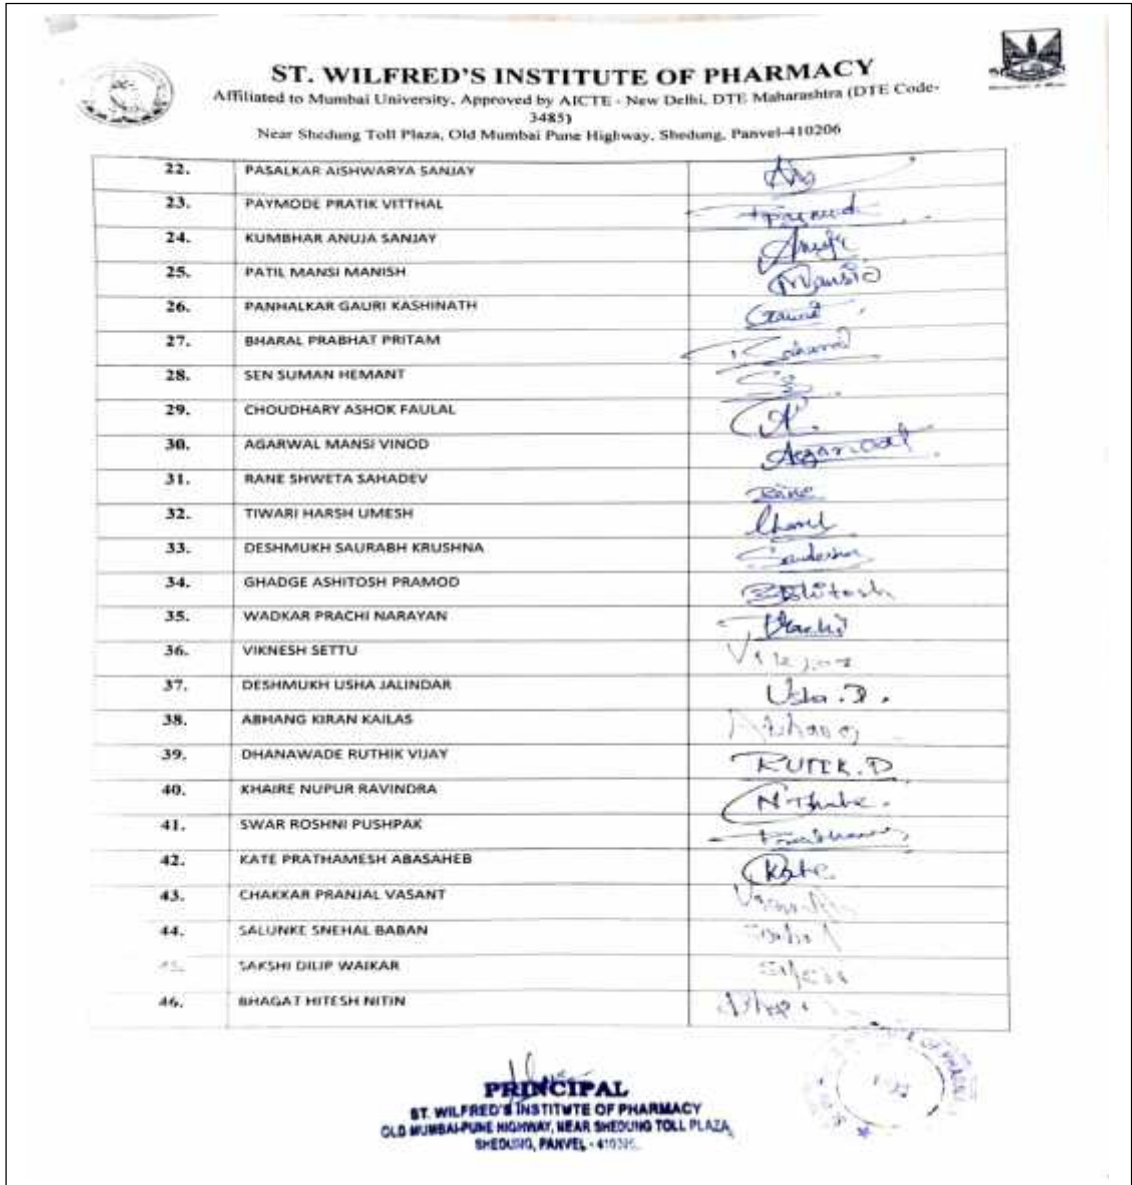 ST. WILFRED'S INSTITUTE OF PHARMACY
Affiliated to Mumbai University, Approved by AICTE - New Delhi, DTE Maharashtra (DTE Code-
3485)
Near Shedung Toll Plaza, Old Mumbai Pune Highway, Shedung, Panvel-410206
22. PASALKAR AISHWARYA SANJAY
23. PAYMODE PRATIK VITTHAL
24. KUMBHAR ANUJA SANJAY Anuja
25. PATIL MANSI MANISH Mansi
26. PANHALKAR GAURI KASHINATH
27. BHARAL PRABHAT PRITAM
28. SEN SUMAN HEMANT
29. CHOUDHARY ASHOK FAULAL
30. AGARWAL MANSI VINOD Agarwal
31. RANE SHWETA SAHADEV Rane
32. TIWARI HARSH UMESH
33. DESHMUKH SAURABH KRUSHNA
34. GHADGE ASHITOSH PRAMOD
35. WADKAR PRACHI NARAYAN Prachi
36. VIKNESH SETTU
37. DESHMUKH USHA JALINDAR Usha . D .
38. ABHANG KIRAN KAILAS Abhang
39. DHANAWADE RUTHIK VIJAY
40. KHAIRE NUPUR RAVINDRA
41. SWAR ROSHNI PUSHPAK
42. KATE PRATHAMESH ABASAHEB Kate
43. CHAKKAR PRANJAL VASANT
44. SALUNKE SNEHAL BABAN
45. SAKSHI DILIP WAIKAR
46. BHAGAT HITESH NITIN
PRINCIPAL
ST. WILFRED'S INSTITUTE OF PHARMACY
OLD MUMBAI-PUNE HIGHWAY, NEAR SHEDUNG TOLL PLAZA,
SHEDUNG, PANVEL - 410206.